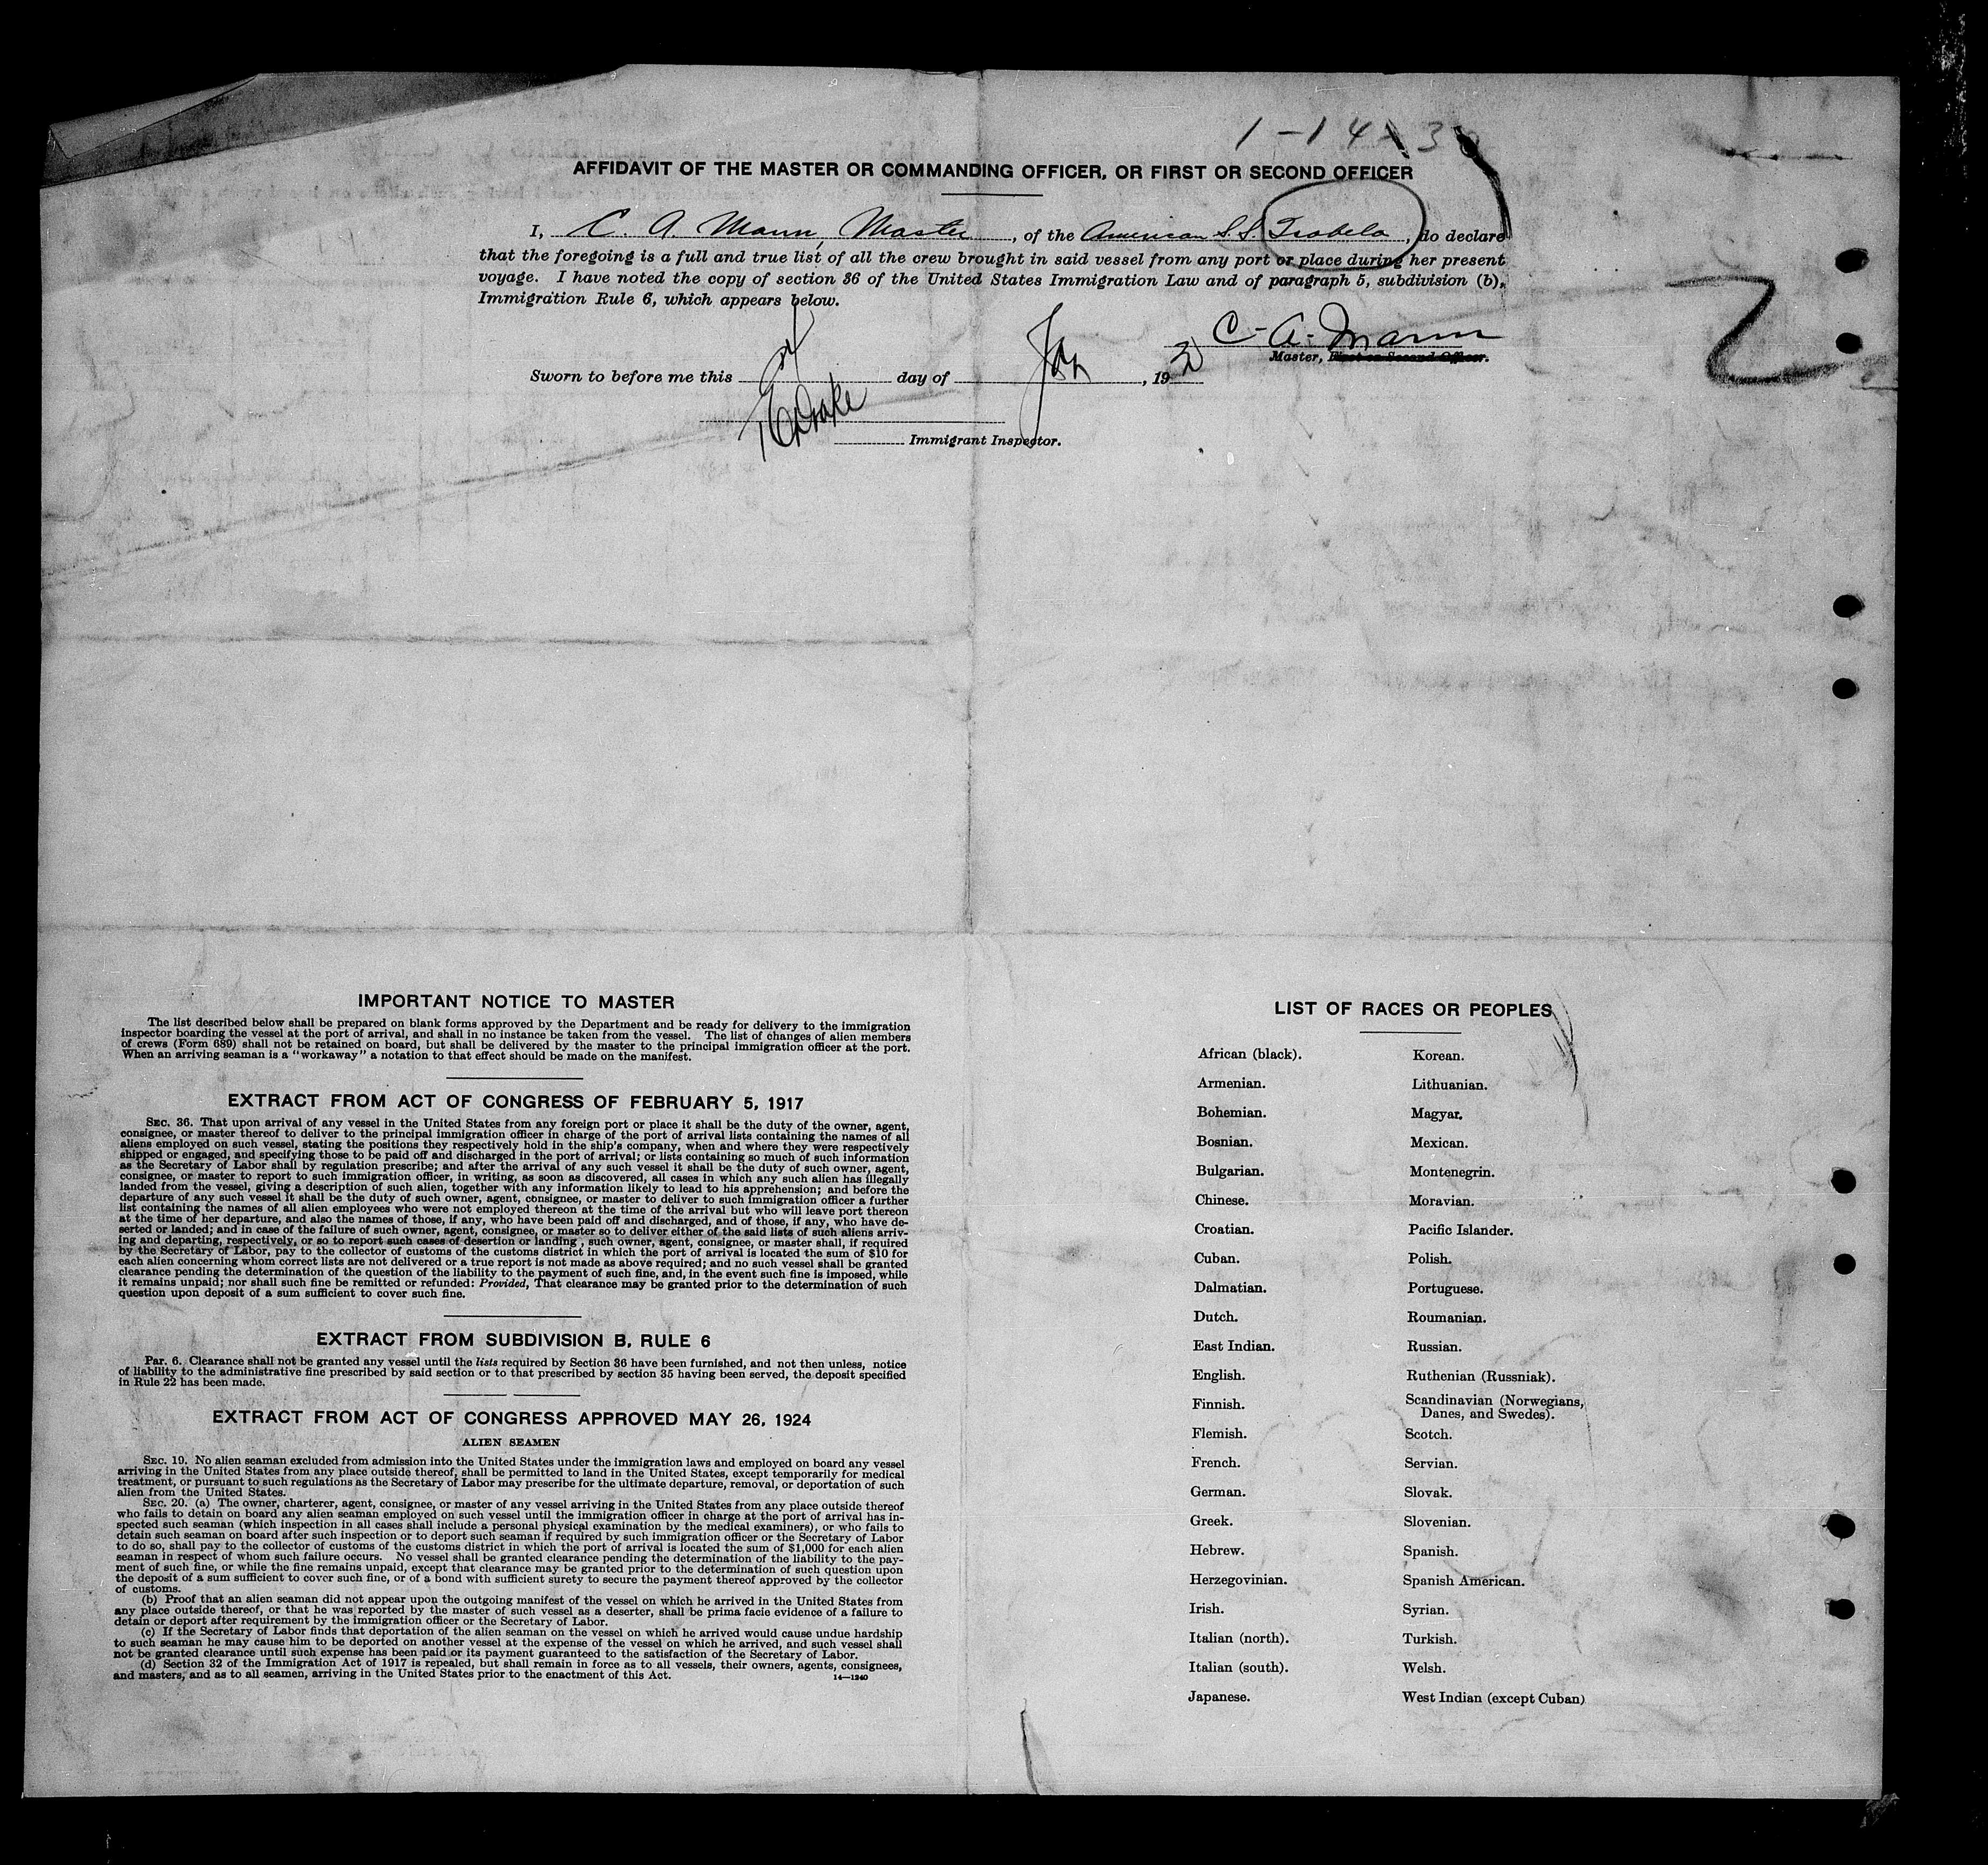 1-14-30
AFFIDAVIT OF THE MASTER OR COMMANDING OFFICER, OR FIRST OR SECOND OFFICER
I, C. A. Mann, Master, of the American S.S. Isabela, do declare
that the foregoing is a full and true list of all the crew brought in said vessel from any port or place during her present
voyage. I have noted the copy of section 36 of the United States Immigration Law and of paragraph 5, subdivision (b),
Immigration Rule 6, which appears below.
C. A. Mann
Master, First or Second Officer.
Sworn to before me this day of Jan, 19
Immigrant Inspector.
2
IMPORTANT NOTICE TO MASTER
The list described below shall be prepared on blank forms approved by the Department and be ready for delivery to the immigration
inspector boarding the vessel at the port of arrival, and shall in no instance be taken from the vessel. The list of changes of alien members
of crews (Form 689) shall not be retained on board, but shall be delivered by the master to the principal immigration officer at the port.
When an arriving seaman is a "workaway" a notation to that effect should be made on the manifest.
EXTRACT FROM ACT OF CONGRESS OF FEBRUARY 5, 1917
SEC. 36. That upon arrival of any vessel in the United States from any foreign port or place it shall be the duty of the owner, agent,
consignee, or master thereof to deliver to the principal immigration officer in charge of the port of arrival lists containing the names of all
aliens employed on such vessel, stating the positions they respectively hold in the ship's company, when and where they were respectively
shipped or engaged, and specifying those to be paid off and discharged in the port of arrival; or lists containing so much of such information
as the Secretary of Labor shall by regulation prescribe; and after the arrival of any such vessel it shall be the duty of such owner, agent,
consignee, or master to report to such immigration officer, in writing, as soon as discovered, all cases in which any such alien has illegally
landed from the vessel, giving a description of such alien, together with any information likely to lead to his apprehension; and before the
departure of any such vessel it shall be the duty of such owner, agent, consignee, or master to deliver to such immigration officer a further
list containing the names of all alien employees who were not employed thereon at the time of the arrival but who will leave port thereon
at the time of her departure, and also the names of those, if any, who have been paid off and discharged, and of those, if any, who have de-
serted or landed; and in case of the failure of such owner, agent, consignee, or master so to deliver either of the said lists of such aliens arriv-
ing and departing, respectively, or so to report such cases of desertion or landing , such owner, agent, consignee, or master shall, if required
by the Secretary of Labor, pay to the collector of customs of the customs district in which the port of arrival is located the sum of $10 for
each alien concerning whom correct lists are not delivered or a true report is not made as above required; and no such vessel shall be granted
clearance pending the determination of the question of the liability to the payment of such fine, and, in the event such fine is imposed, while
it remains unpaid; nor shall such fine be remitted or refunded: Provided, That clearance may be granted prior to the determination of such
question upon deposit of a sum sufficient to cover such fine.
EXTRACT FROM SUBDIVISION B, RULE 6
Par. 6. Clearance shall not be granted any vessel until the lists required by Section 36 have been furnished, and not then unless, notice
of liability to the administrative fine prescribed by said section or to that prescribed by section 35 having been served, the deposit specified
in Rule 22 has been made.
EXTRACT FROM ACT OF CONGRESS APPROVED MAY 26, 1924
ALIEN SEAMEN
SEC. 19. No alien seaman excluded from admission into the United States under the immigration laws and employed on board any vessel
arriving in the United States from any place outside thereof, shall be permitted to land in the United States, except temporarily for medical
treatment, or pursuant to such regulations as the Secretary of Labor may prescribe for the ultimate departure, removal, or deportation of such
alien from the United States.
SEC. 20. (a) The owner, charterer, agent, consignee, or master of any vessel arriving in the United States from any place outside thereof
who fails to detain on board any alien seaman employed on such vessel until the immigration officer in charge at the port of arrival has in-
spected such seaman (which inspection in all cases shall include a personal physical examination by the medical examiners), or who fails to
detain such seaman on board after such inspection or to deport such seaman if required by such immigration officer or the Secretary of Labor
to do so, shall pay to the collector of customs of the customs district in which the port of arrival is located the sum of $1,000 for each alien
seaman in respect of whom such failure occurs. No vessel shall be granted clearance pending the determination of the liability to the pay-
ment of such fine, or while the fine remains unpaid, except that clearance may be granted prior to the determination of such question upon
the deposit of a sum sufficient to cover such fine, or of a bond with sufficient surety to secure the payment thereof approved by the collector
of customs.
(b) Proof that an alien seaman did not appear upon the outgoing manifest of the vessel on which he arrived in the United States from
any place outside thereof, or that he was reported by the master of such vessel as a deserter, shall be prima facie evidence of a failure to
detain or deport after requirement by the immigration officer or the Secretary of Labor.
(c) If the Secretary of Labor finds that deportation of the alien seaman on the vessel on which he arrived would cause undue hardship
to such seaman he may cause him to be deported on another vessel at the expense of the vessel on which he arrived, and such vessel shall
not be granted clearance until such expense has been paid or its payment guaranteed to the satisfaction of the Secretary of Labor.
(d) Section 32 of the Immigration Act of 1917 is repealed, but shall remain in force as to all vessels, their owners, agents, consignees,
and masters, and as to all seamen, arriving in the United States prior to the enactment of this Act.
14—1240
LIST OF RACES OR PEOPLES
African (black).
Armenian.
Bohemian.
Bosnian.
Bulgarian.
Chinese.
Croatian.
Cuban.
Dalmatian.
Dutch.
East Indian.
English.
Finnish.
Flemish.
French.
German.
Greek.
Hebrew.
Herzegovinian.
Irish.
Italian (north).
Italian (south).
Japanese.
Korean.
Lithuanian.
Magyar.
Mexican.
Montenegrin.
Moravian.
Pacific Islander.
Polish.
Portuguese.
Roumanian.
Russian.
Ruthenian (Russniak).
Scandinavian (Norwegians,
Danes, and Swedes).
Scotch.
Servian.
Slovak.
Slovenian.
Spanish.
Spanish American.
Syrian.
Turkish.
Welsh.
West Indian (except Cuban)